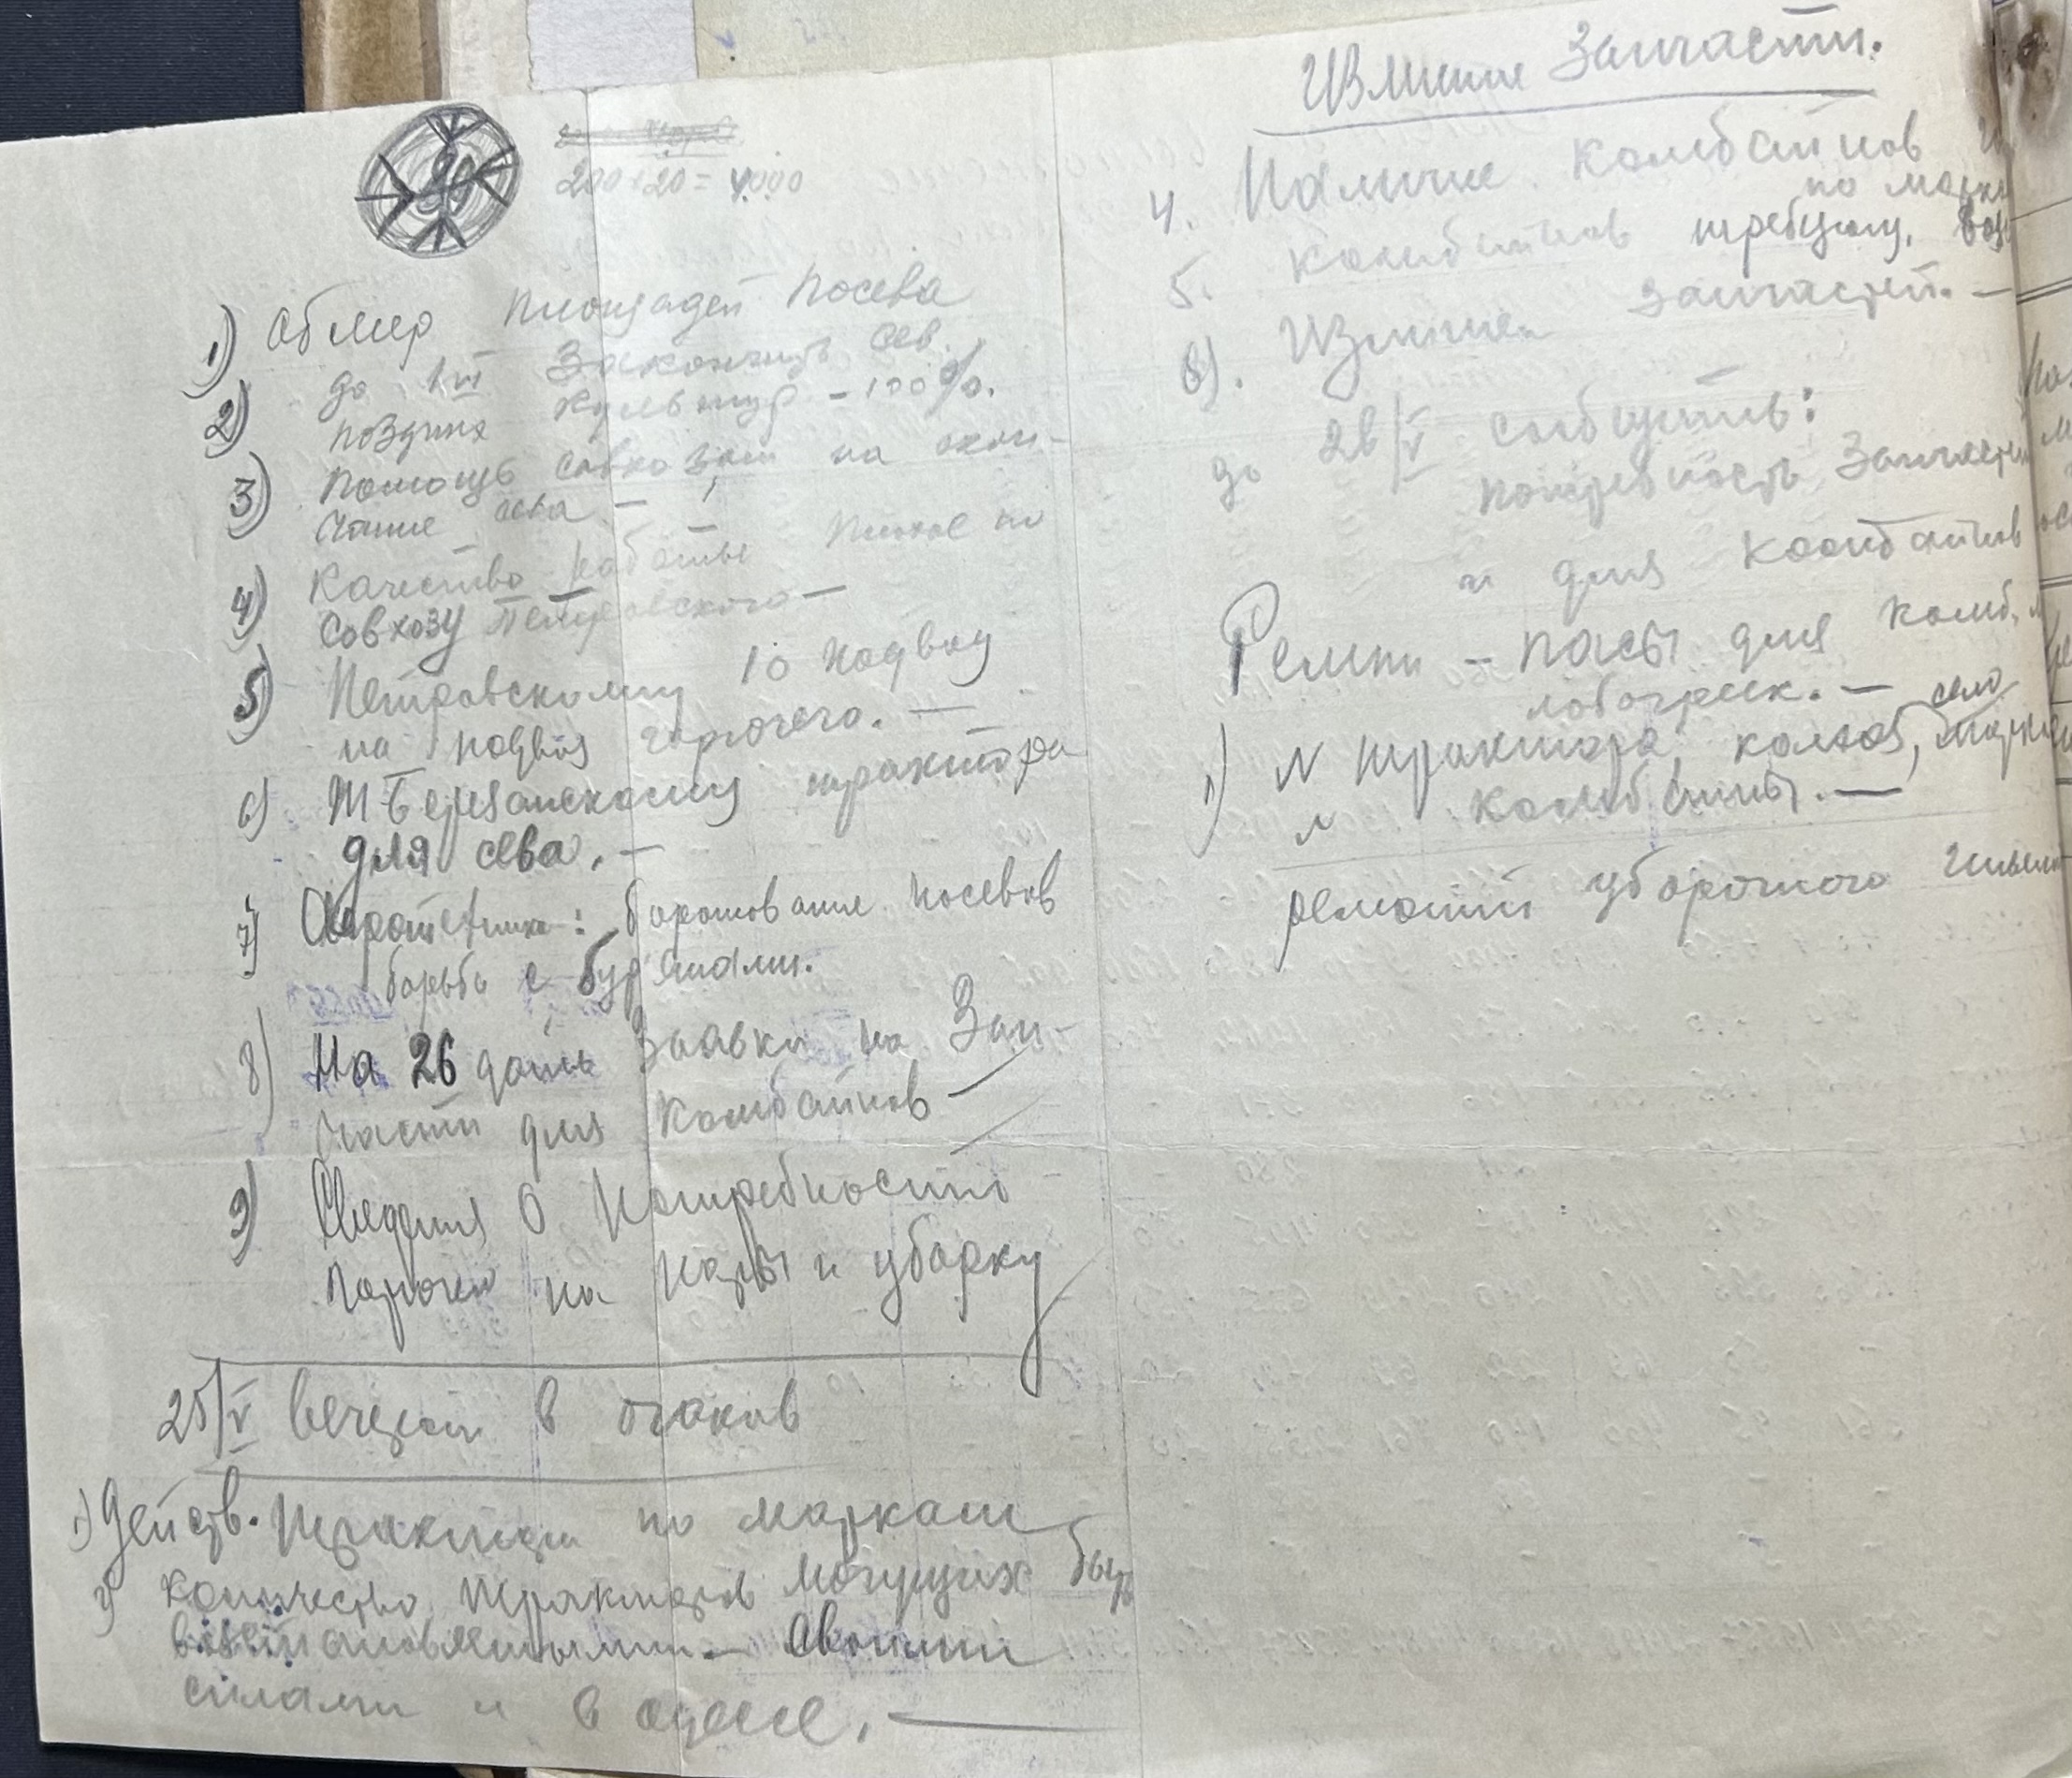 200 x 20 = 4000
1) Обмер площадей посева
2) до 1/VI Закончить сев.
поздних культур - 100%.
3) Помощь Совхозам на окон-
чание сева -
4) Качество работы плохое по
Совхозу Петровского -
5) Петровскому 10 подвод
на подвоз горючего. -
6) Т Березанскому трактора
для сева. -
7) боронование посевов
борьба с бур'янами.
8) На 26 дать Заявки на Зап-
части для Комбайнов -
9) Сведения о потребности
горючего на пары и уборку
25/V вечером в очаков
1) Действ. трактора по маркам
2) Количество тракторов могущих быть
восстановленными - своими
силами и в одессе. -
Излишние Запчасти.
4. Наличие комбайнов
по марк
5. Комбайнов требующ.
запчастей. -
6). Излишек
до 26/V сообщить:
потребность Запчастей
и для комбайнов
Ремни - пасы для комб.
лобогреек. -
1) N трактора, колхоз, село
N комбайны. -
ремонт уборочного